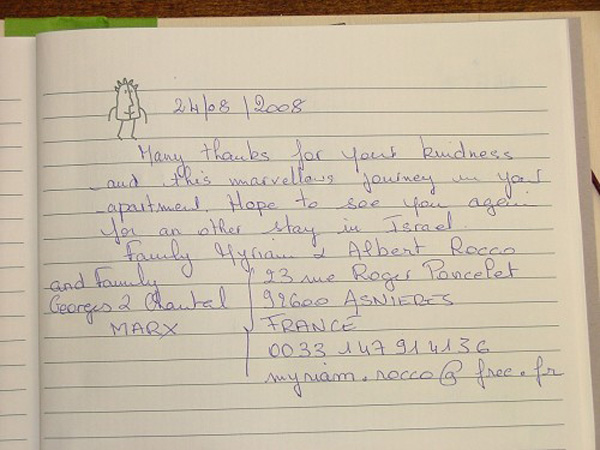 24/08/2008
Many thanks for your kindness
and this marvellous journey in your
apartment. Hope to see you again
for an other stay in Israel.
Family Myriam & Albert Rocco
and Family
Georges & Chantal
MARX
23 rue Roger Poncelet
92600 ASNIERES
FRANCE
0033 147914136
myriam.rocco@free.fr